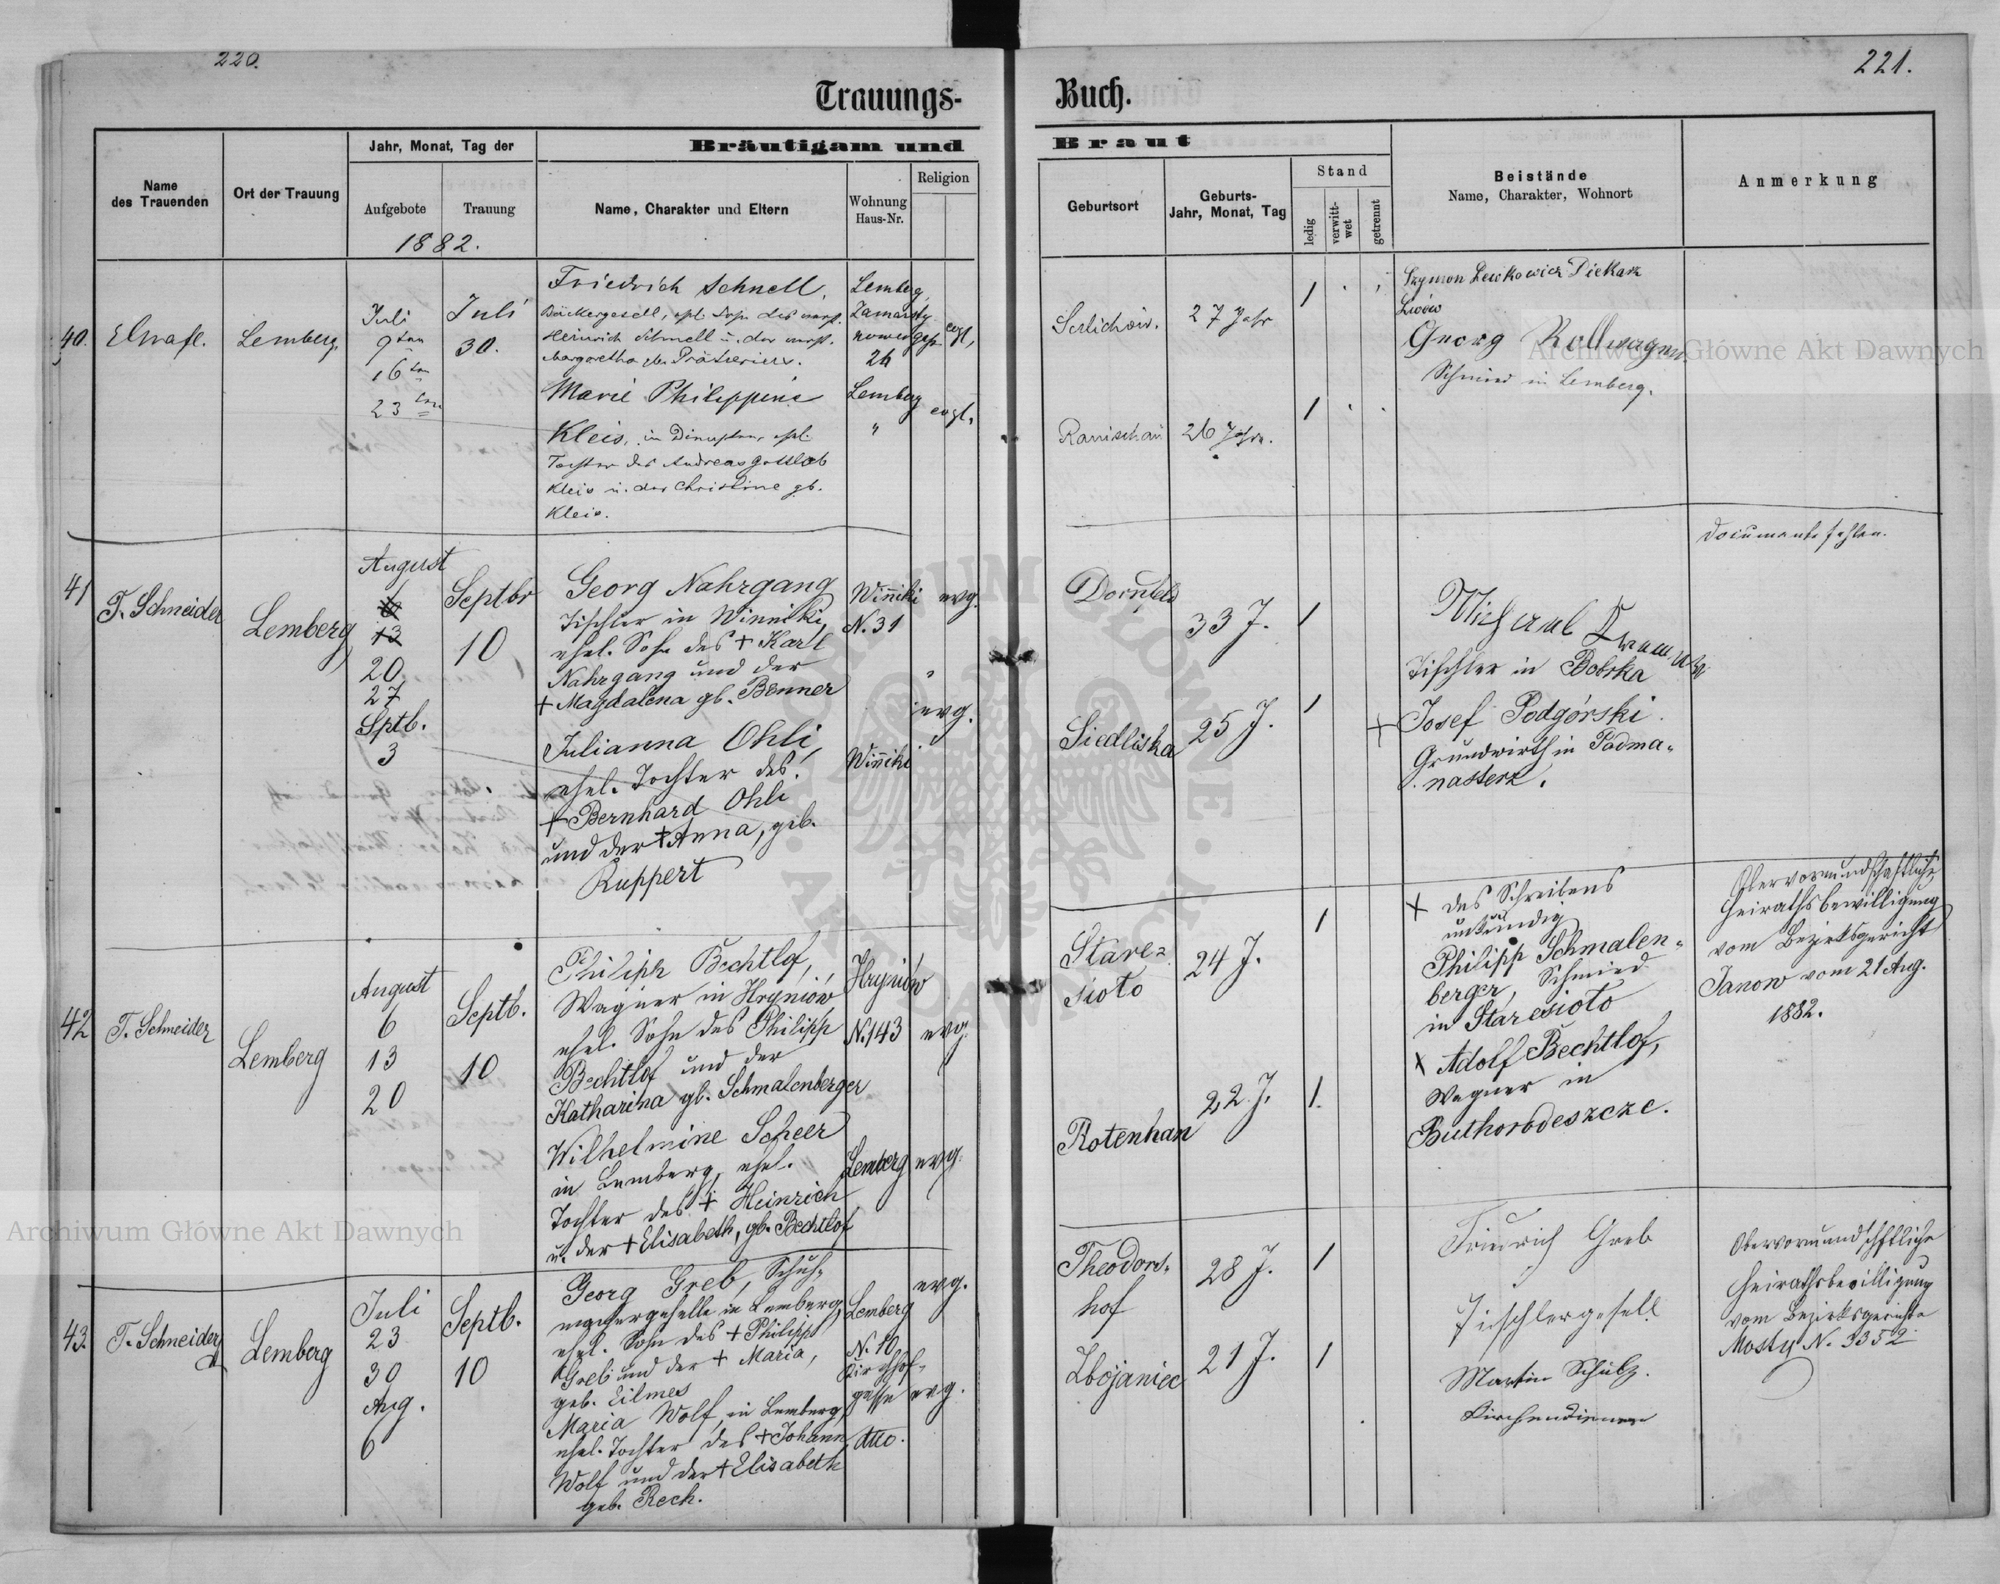 220.
221.
Trauungs-
Buch.
Name des Trauenden
Ort der Trauung
Jahr, Monat, Tag der
Aufgebote
Trauung
1882.
Bräutigam und
Braut
Name, Charakter und Eltern
Wohnung
Haus-Nr.
Religion
Geburtsort
Geburts-
Jahr, Monat, Tag
Stand
ledig
verwitt-
wet
getrennt
Beistände
Name, Charakter, Wohnort
Anmerkung
40.
Lemberg.
Juli
9ten
16ten
23ten
Juli
30.
Friedrich Schnell,
Bäckergesell, ehl. Sohn des verst.
Heinrich Schnell u. der verst.
Margaretha
Lemberg,
26
evgl.
Marie Philippine
Kleis, in Diensten, ehl.
Tochter des Andreas Gottlob
Kleis u. der Christine gb.
Kleis.
Lemberg
"
evgl.
27 Jahr
1
Ranischau
26 Jahr.
1
Szymon Lewkowicz Piekarz
Lwów
Georg Rollwagen
Schmied in Lemberg.
41
T. Schneider
Lemberg
August
6
13
20
27
Sptb.
3
Septbr
10
Georg Nahrgang
Tischler in Winniki,
ehel. Sohn des + Karl
Nahrgang und der
+ Magdalena gb. Benner
Winniki
N. 31
evg.
Julianna Ohli,
ehel. Tochter des
+ Bernhard Ohli
und der + Anna, geb.
Ruppert
Winniki
evg.
Dornfeld
33 J.
1
Siedliska
25 J.
1
Michael
Tischler in Bobrka
+ Josef Podgórski
Grundwirth in Podma-
nasterz.
Documente fehlen.
42
T. Schneider
Lemberg
August
6
13
20
Septb.
10
Philipp Bechtlof,
Wagner in Hryniów
ehel. Sohn des Philipp
Bechtlof und der
Katharina gb. Schmalenberger
Hryniów
N. 143
evg.
Wilhelmine Scheer
in Lemberg, ehel.
Tochter des + Heinrich
u. der + Elisabeth, gb. Bechtlof
Lemberg
evg.
Stare-
sioto
24 J.
1
Rotenhan
22 J.
1.
+ des Schreibens
unkundig
Philipp Schmalen-
berger, Schmied
in Staresioto
+ Adolf Bechtlof,
Wagner in
Buthorodeszcze.
Obervormundschaftliche
Heirathsbewilligung
vom Bezirksgericht
Janow vom 21 Aug.
1882.
43.
T. Schneider
Lemberg
Juli
23
30
Aug.
6
Septb.
10
Georg Greb, Schuh-
machergeselle in Lemberg,
ehel. Sohn des + Philipp
Greb und der + Maria,
geb. Eilmes
Lemberg
N. 10
Kirchhof-
gasse
evg.
Maria Wolf, in Lemberg,
ehel. Tochter des + Johann
Wolf und der + Elisabeth
geb. Rech.
dtto.
evg.
Theodors-
hof
28 J.
1
Zbojaniec
21 J.
1
Friedrich Greb
Tischlergesell
Martin Schulz.
Kirchendiener
Obervormundschftliche
Heirathsbewilligung
vom Bezirksgerichte
Mosty N. 3352
Archiwum Główne Akt Dawnych
Archiwum Główne Akt Dawnych